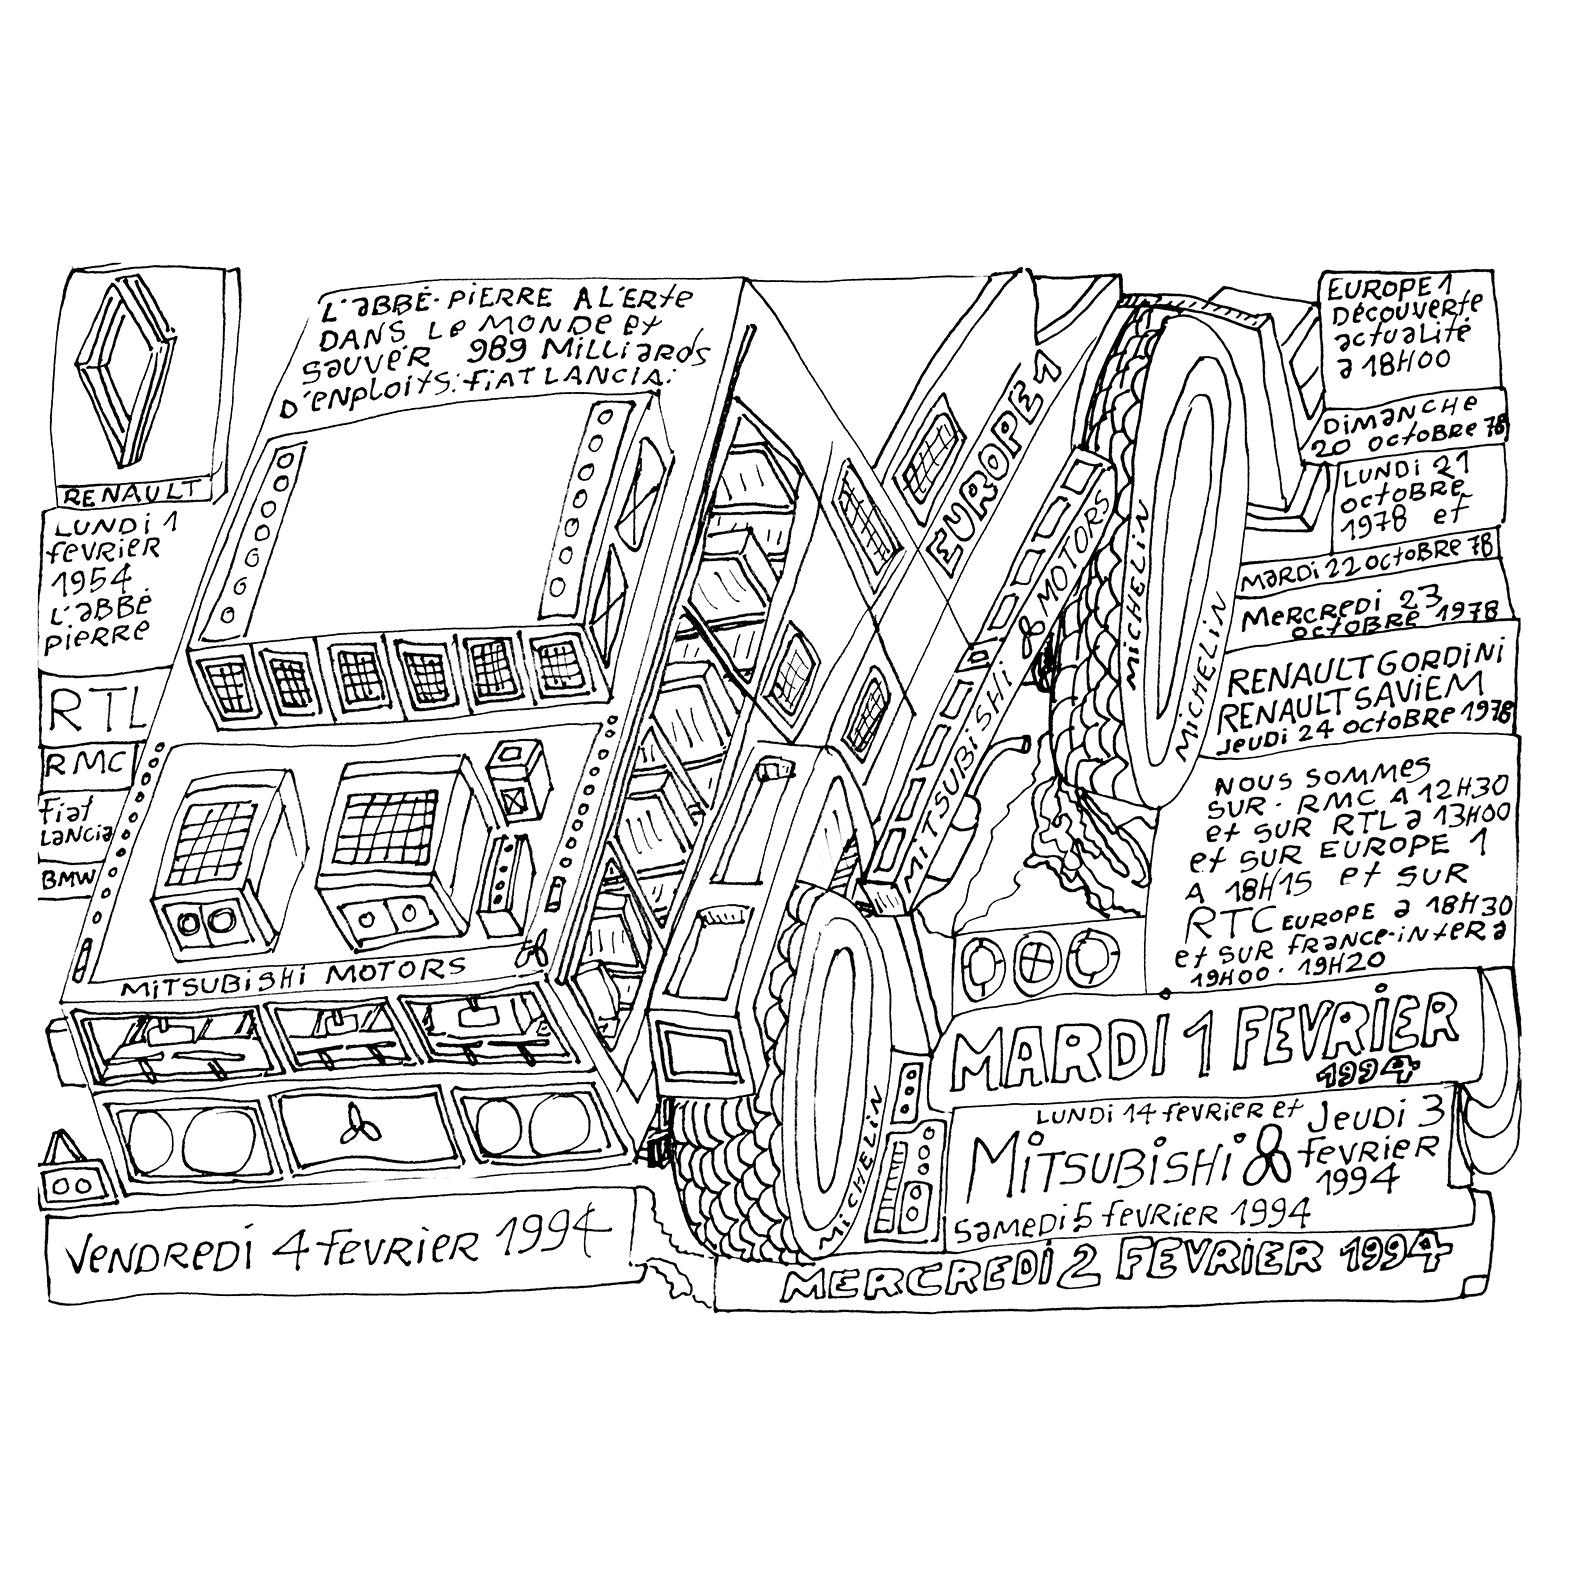 RENAULT
LUNDI 1
fevrier
1954
L'abbé
pierre
RTL
RMC
fiat
Lancia
BMW
L'abbé-pierre a l'erte
dans le monde et
sauver 989 milliards
d'enploits: fiat lancia:
MITSUBISHI MOTORS
VENDREDI 4 fevrier 1994
EUROPE 1
MITSUBISHI MOTORS
MICHELIN
MICHELIN
MICHELIN
EUROPE 1
Découverte
actualité
a 18H00
Dimanche
20 octobre 78
LUNDI 21
octobre
1978 et
mardi 22 octobre 78
Mercredi 23
octobre 1978
RENAULT GORDINI
RENAULT SAVIEM
jeudi 24 octobre 1978
NOUS SOMMES
SUR. RMC A 12H30
et SUR RTL a 13H00
et SUR EUROPE 1
A 18H15 et SUR
RTC EUROPE a 18H30
et SUR france-inter a
19H00. 19H20
MARDI 1 FEVRIER
1994
LUNDI 14 fevrier et Jeudi 3
MITSUBISHI fevrier
1994
samedi 5 fevrier 1994
MERCREDI 2 FEVRIER 1994